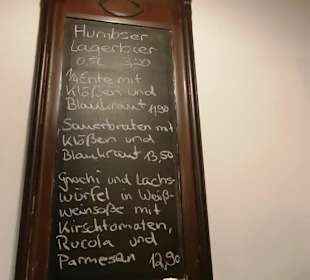 Humbser
Lagerbier
0,5l 3,20
1/4 Ente mit
Klößen und
Blaukraut 11,90
Sauerbraten mit
Klößen und
Blaukraut 13,50
Gnochi und Lachs-
würfel in Weiß-
weinsoße mit
Kirschtomaten,
Rucola und
Parmesan 12,90